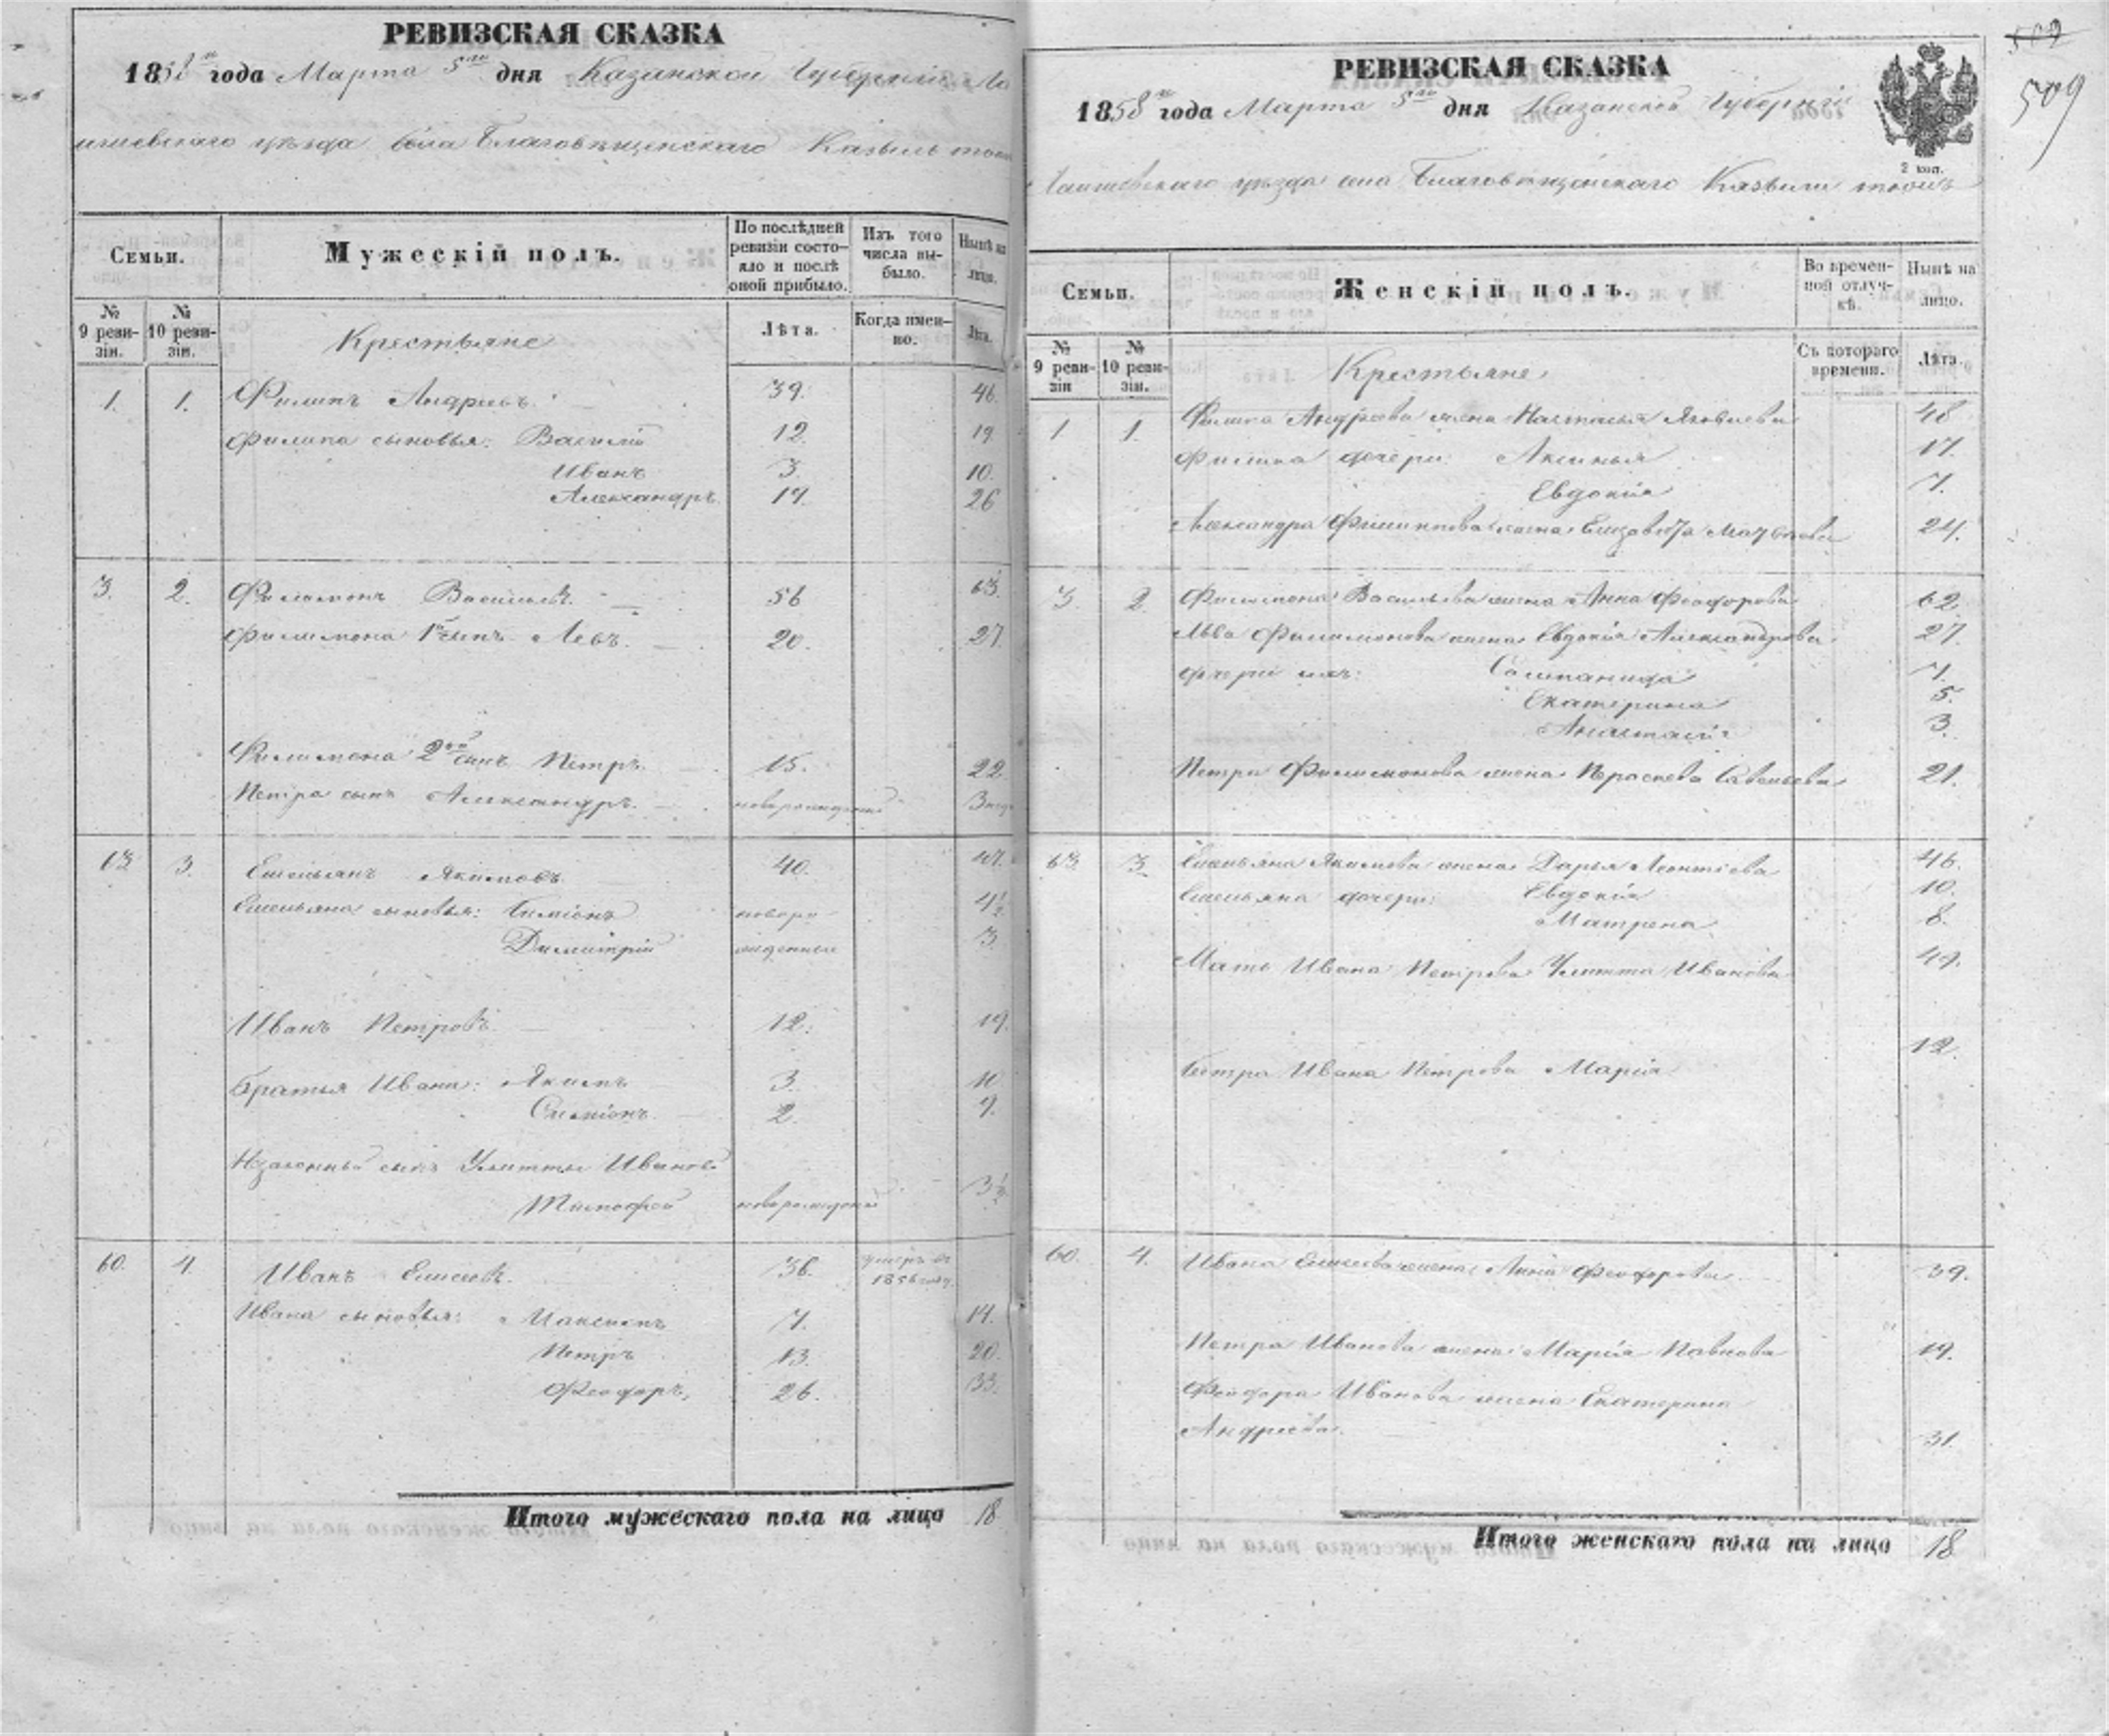 РЕВИЗСКАЯ СКАЗКА
1858 года Марта 5го дня Казанской Губерніи
уѣзда села Благовѣщенскаго
Семьи.
Мужескій полъ.
По послѣдней ревизіи состояло и послѣ оной прибыло.
Изъ того числа выбыло.
Нынѣ на лицо.
№ 9 ревизіи.
№ 10 ревизіи.
Крестьяне
Лѣта.
Когда именно.
Лѣта.
1. 1. Филипъ Андреевъ 39. 46.
Филипа сыновья: Василій 12. 19
Иванъ 3. 10.
Александръ 19. 26
3. 2. Филимонъ Васильевъ. 56 63.
Филимона 1й сынъ Левъ. 20. 27.
Филимона 2ой сынъ Петръ. 15. 22
Петра сынъ Александръ. новорожденный
63 3. Емельянъ Якимовъ 40. 47.
Емельяна сыновья: новоро
Димитрій жденные 3.
Иванъ Петровъ 12. 19.
Братья Ивана: Якимъ 3.
Симіонъ. 2. 9.
сынъ Улитты Ивановой
Тимофей новорожденный 3½
60. 4. Иванъ Елисеевъ. 36. умеръ въ 1856 году.
Ивана сыновья: Максимъ 7. 14.
Петръ 13. 20.
Феодоръ, 26. 33.
Итого мужескаго пола на лицо 18
509
509
РЕВИЗСКАЯ СКАЗКА
2 коп.
1858 года Марта 5го дня Казанской Губерніи
Лаишевскаго уѣзда села Благовѣщенскаго
Семьи.
Женскій полъ.
Во временной отлучкѣ.
Нынѣ на лицо.
№ 9 ревизіи
№ 10 ревизіи.
Крестьяне
Съ котораго времени.
Лѣта.
1 1. Филипа Андреева жена Настасья Яковлева 48
Филипа дочери Аксинья 17.
Евдокія 7.
Александра Филиппова жена Елизавета 24.
3 2 Филимона Васильева жена Анна Феодорова 62
Льва Филимонова жена Евдокія Александрова 27.
дочери ихъ: 7.
Екатерина 5.
Анастасія 3.
Петра Филимонова жена Праскева Савельева 21.
63 3. Емельяна Якимова жена Дарья Леонтіева 46.
Емельяна дочери: Евдокія 10.
Матрена 8.
Мать Ивана Петрова Улитта Иванова 49.
Сестра Ивана Петрова Марія 12.
60. 4. Ивана Елисеева жена Анна Феодорова 39.
Петра Иванова жена Марія Павлова 19.
Феодора Иванова жена Екатерина
Андреева. 31.
Итого женскаго пола на лицо 18